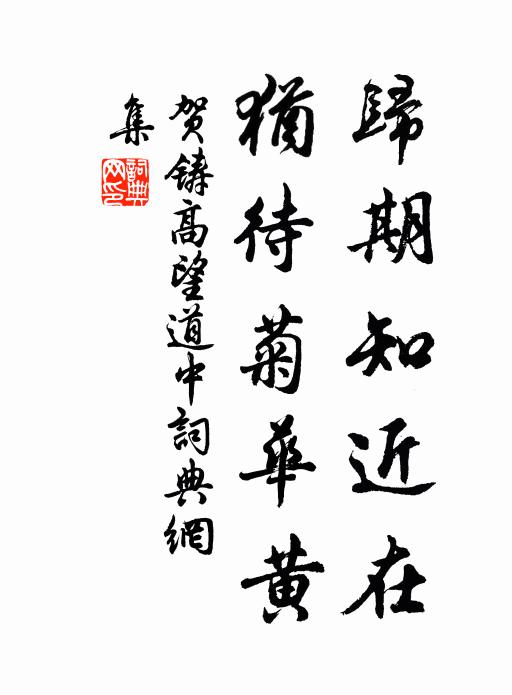 歸期知近在
猶待菊華黃
賀鑄高望道中詞典網
集
詞典網印